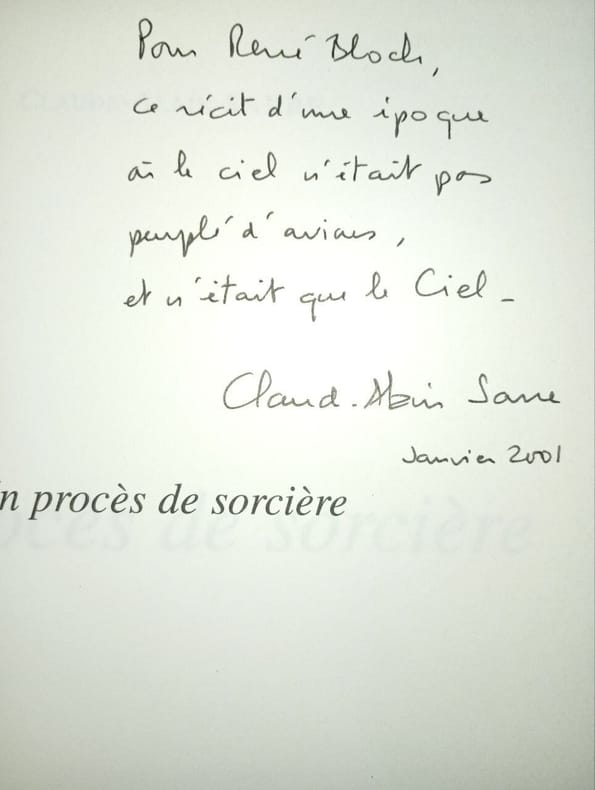 Pour René Bloch,
ce récit d'une époque
où le ciel n'était pas
peuplé d'avions,
et n'était que le Ciel -
Claude-Alain Sarre
Janvier 2001
n procès de sorcière